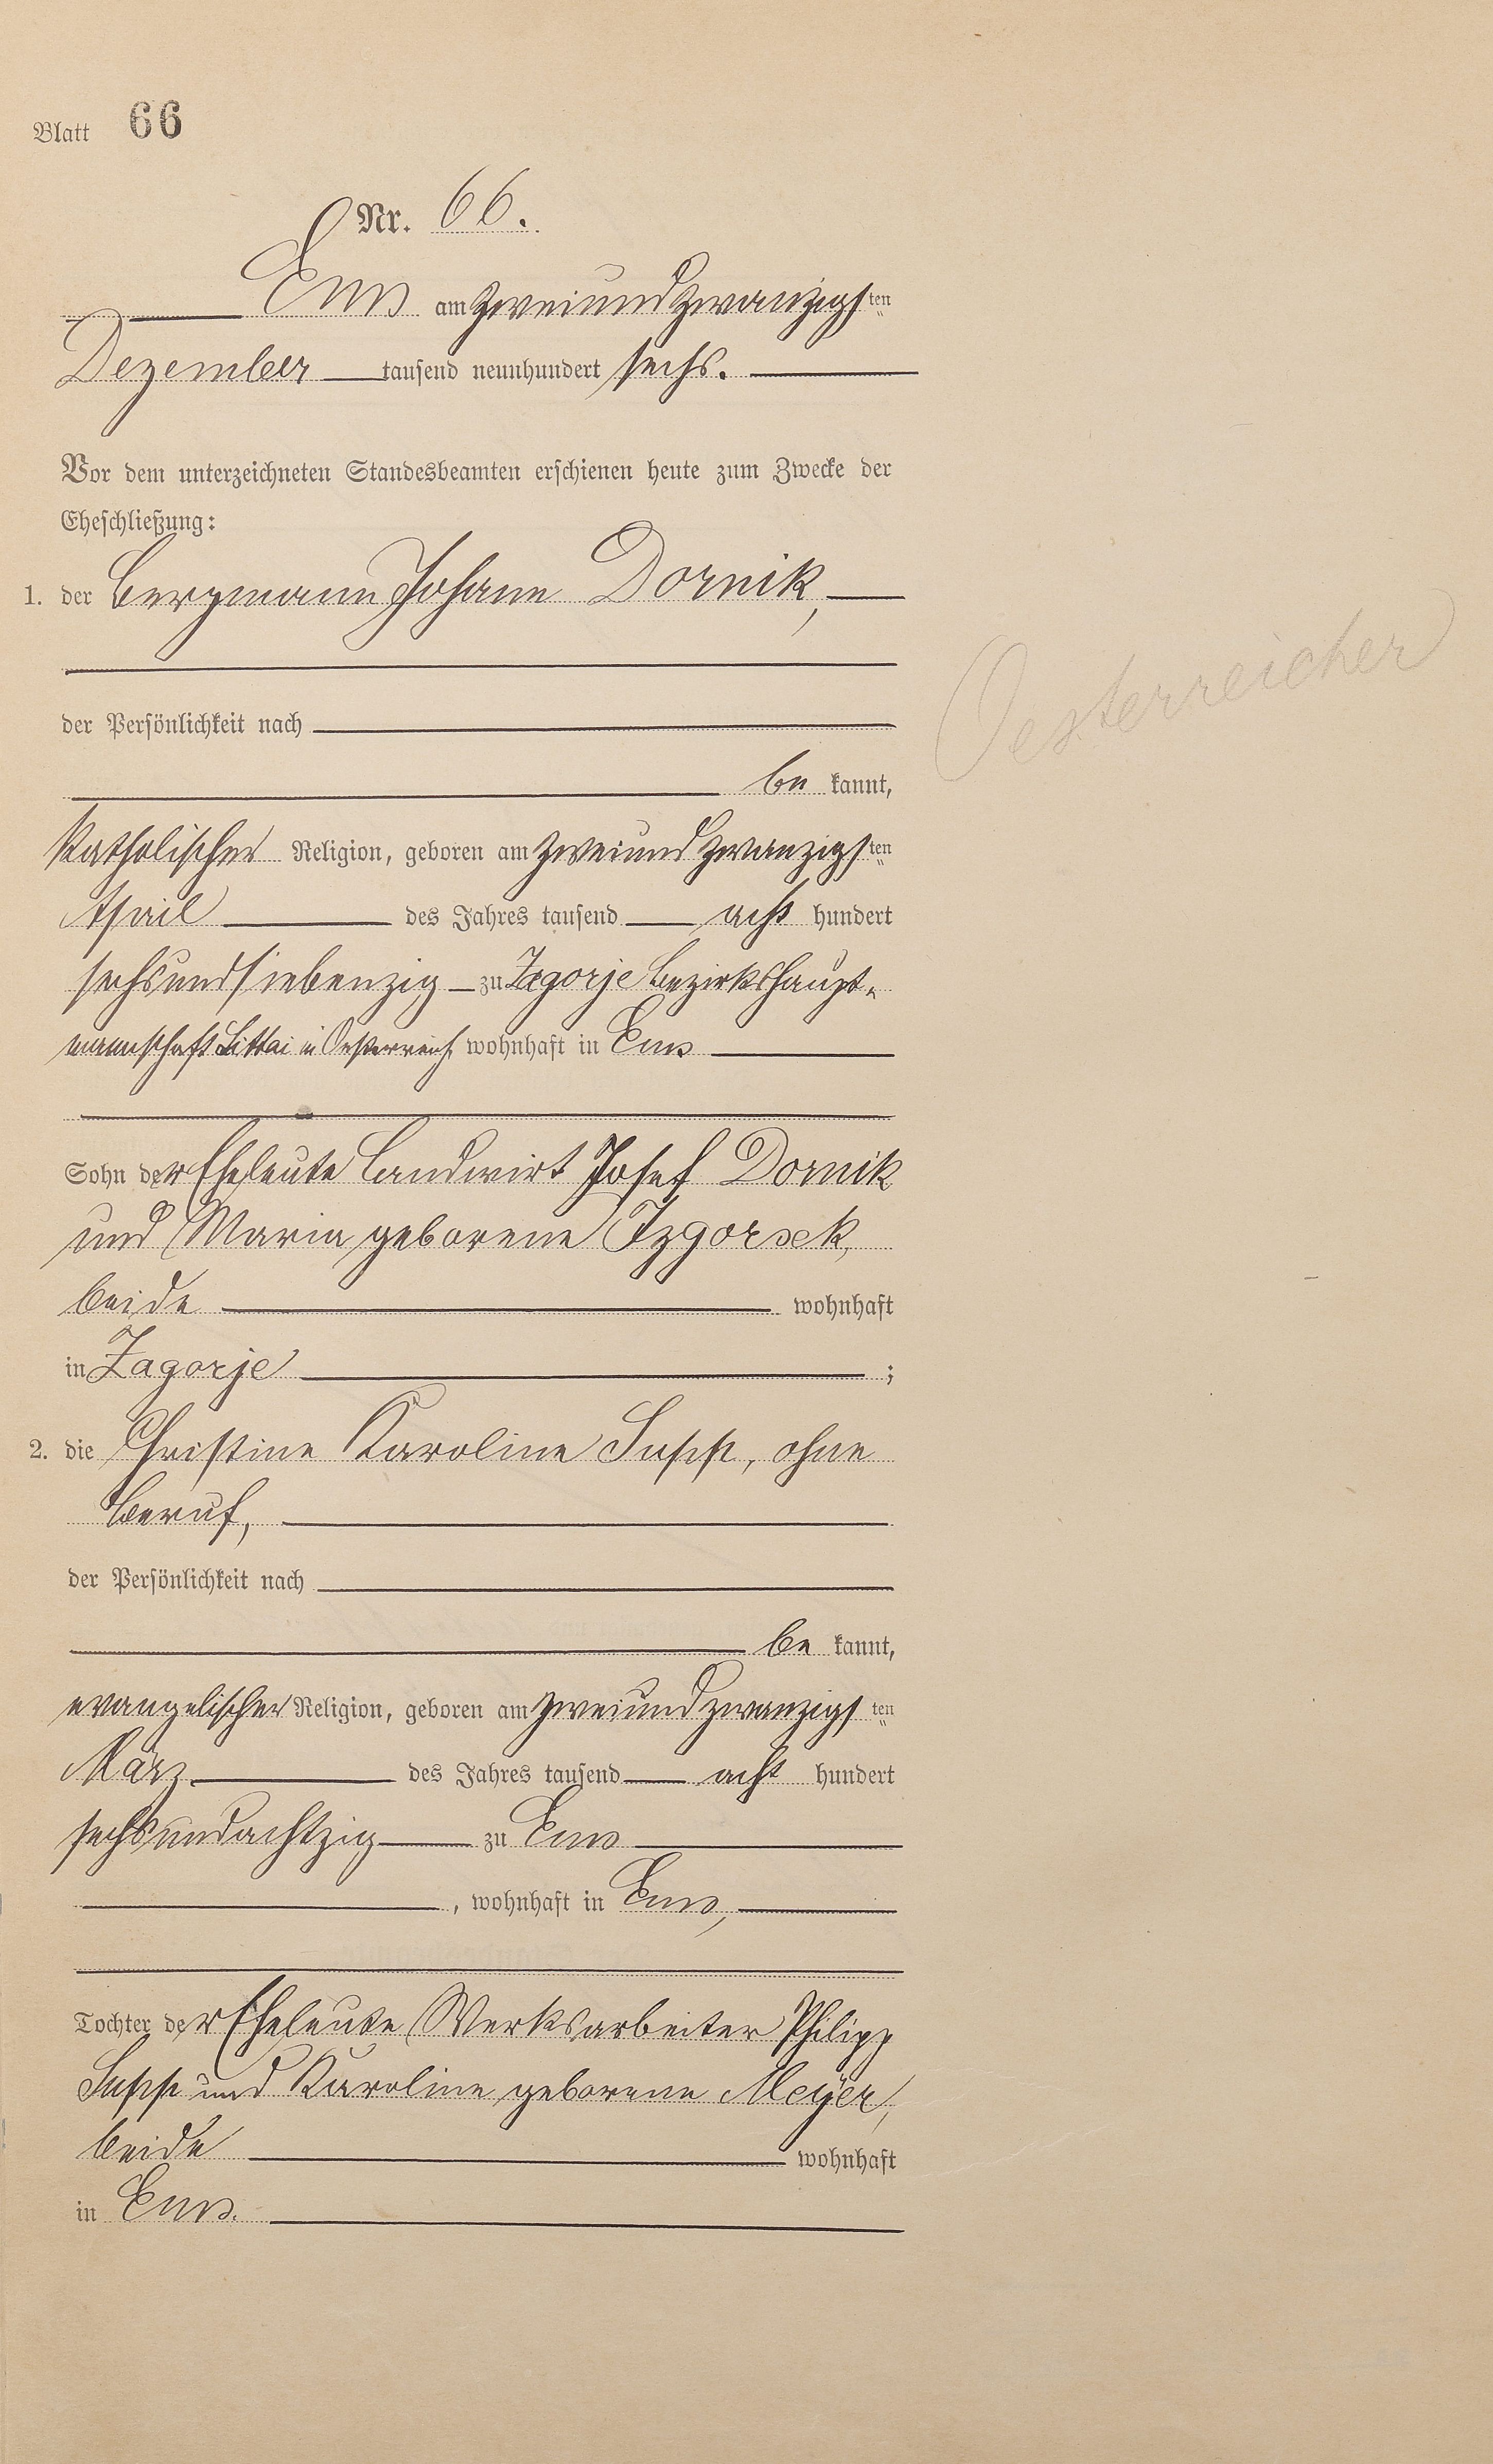 Blatt 66
Nr. 66.
Ems am zweiundzwanzigsten
Dezember tausend neunhundert sechs.
Vor dem unterzeichneten Standesbeamten erschienen heute zum Zwecke der
Eheschließung:
1. der Bergmann Johann Dornik,
der Persönlichkeit nach
be kannt,
Oesterreicher
katholischer Religion, geboren am zweiundzwanzigsten
April des Jahres tausend acht hundert
sechsundsiebenzig zu Zagorje Bezirkshaupt-
mannschaft Littai in Oesterreich, wohnhaft in Ems
Sohn der Eheleute Landwirt Josef Dornik
und Maria geborene Izgorsek,
beide wohnhaft
in Zagorje ;
2. die Christine Karoline Supp, ohne
Beruf,
der Persönlichkeit nach
be kannt,
evangelischer Religion, geboren am zweiundzwanzigsten
März des Jahres tausend acht hundert
sechsundachtzig zu Ems
, wohnhaft in Ems,
Tochter der Eheleute Werksarbeiter Philipp
Supp und Karoline geborene Meyer,
beide wohnhaft
in Ems.